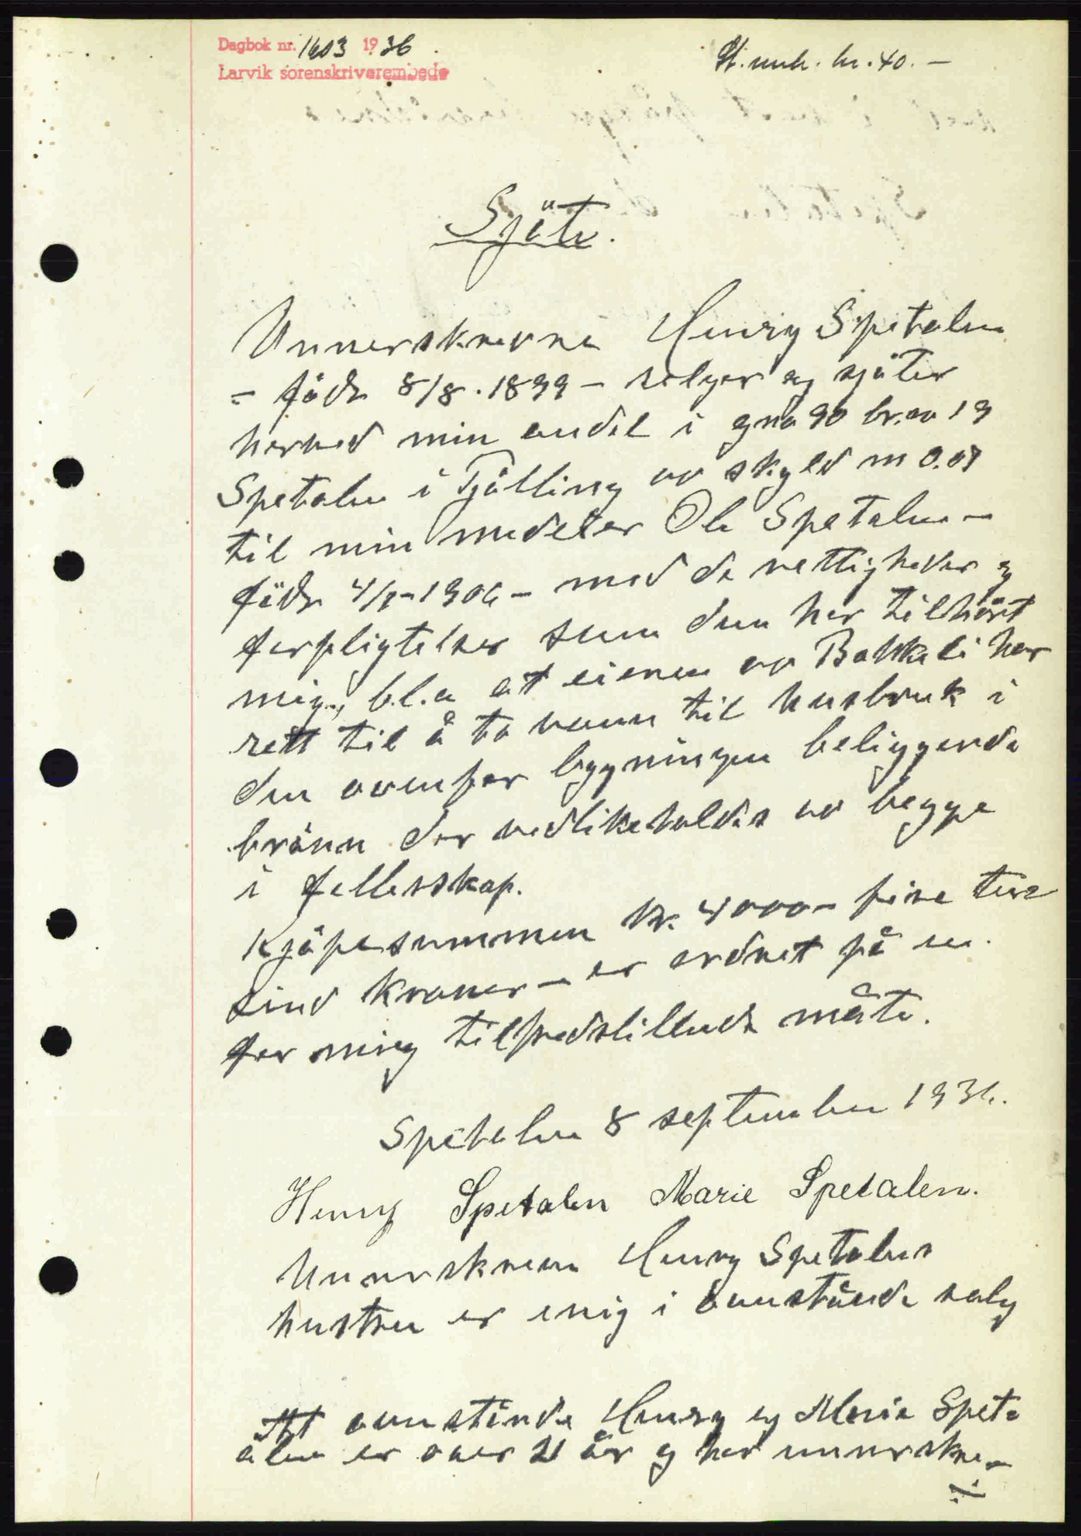 Dagbok nr. 1603 1936
Larvik sorenskriverembede
St. merk. kr. 40.-
Sjöte.
Unnerskrevne Henry Spetalen
- föds 8/8.1899 - selger og sjöter
herved min andel i gno 90 br.no 19
Spetalen i Tjölling av skyld m 0.07
til min medeier Ole Spetalen -
föds 4/8-1906 - med de rettigheder og
forpligtelser som den har tilhört
mig, bl.a at eieren av Bakkeli har
rett til å ta vann til husbruk i
den ovenfor bygningen beliggende
brönn der vedlikeholdes av begge
i fellesskap.
Kjöpesummen kr. 4000- fire tu-
sind kroner - er ordnet på en
for mig tilfredstillende måte.
Spetalen 8 september 1936.
Henry Spetalen Marie Spetalen.
Unnerskrevne Henry Spetalens
hustru er enig i ovenstående salg
At ovenstående Henry og Marie Spet-
alen er over 21 år og har unnerskre-